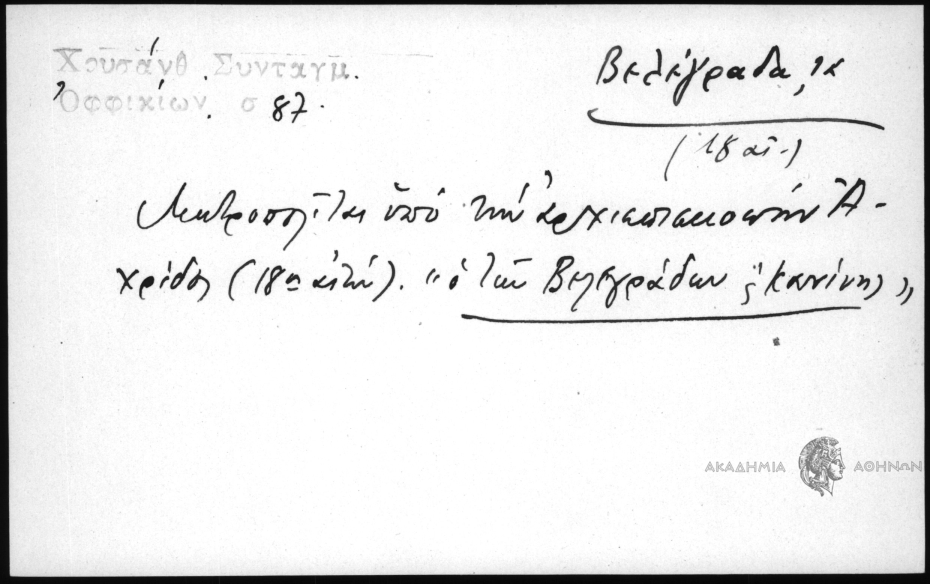 Χρυσάνθ. Συνταγμ.
Ὀφφικίων. σ 87.
Βελέγραδα, τα
(18 αἰ.)
Μητροπολῖται ὑπὸ τὴν ἀρχιεπισκοπὴν Ἀ-
χρίδος (18ος αἰών). "ὁ τῶν Βελεγράδων ϗ Κανίνης"
ΑΚΑΔΗΜΙΑ ΑΘΗΝΩΝ